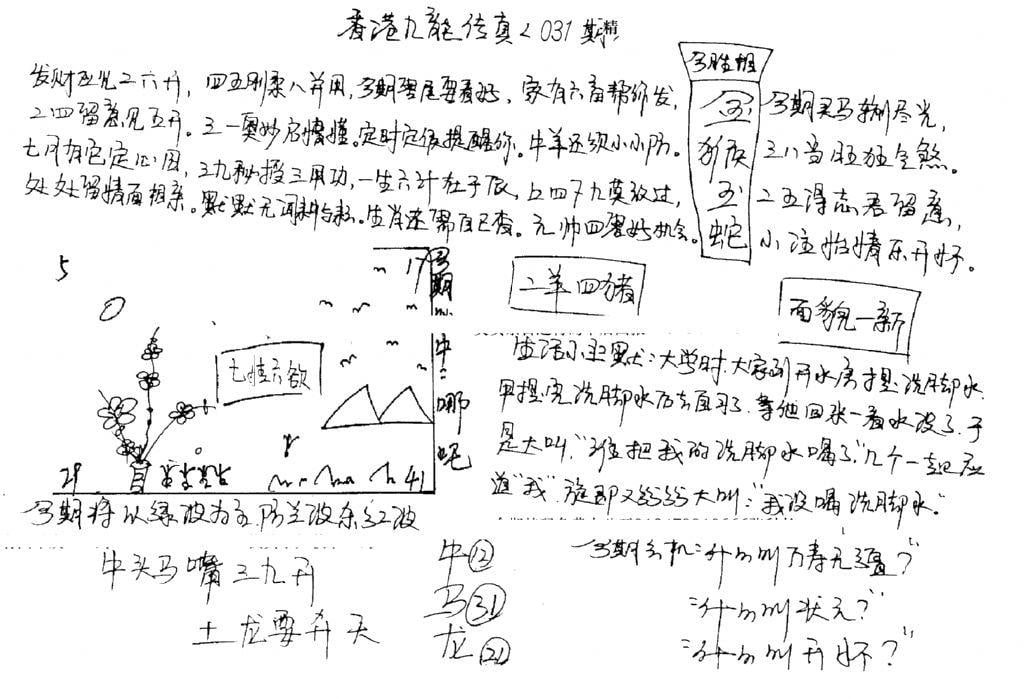 香港九龍传真＜031期精
发财还见二六开，四五刚柔八并用，今期署尾要看好，家有六畜帮你发，
二四留意见五开。三一奥妙启情懂。定时定位提醒你。牛羊还须小小防。
七月有它定心因，三九秒授三用功，一生六计在于辰，上四下九莫放过，
处处留情面相亲。默默无语耕与耘。生肖还需自己查。元帅四署好机会。
今胜相
金猴玉蛇
今期买马输尽光，
三八当旺狂全煞。
二五得志君留意，
小注怡情乐开怀。
5
17
今期三中三哪吒
二羊四猪
面貌一新
七情六欲
29
41
生活小幽默：大学时，大家到开水房提洗脚水，
甲提完洗脚水后去自习了，等他回来一看水没了，于
是大叫，"谁把我的洗脚水喝了"几个一起应
道"我"旋即又纷纷大叫："我没喝洗脚水。"
今期将以绿波为主防兰波杀红波
牛头马嘴三九开
土龙要升天
牛⑫
马㉛
龙㉑
今期玄机：什么叫万寿无疆？"
"什么叫状元？"
"什么叫开怀？"